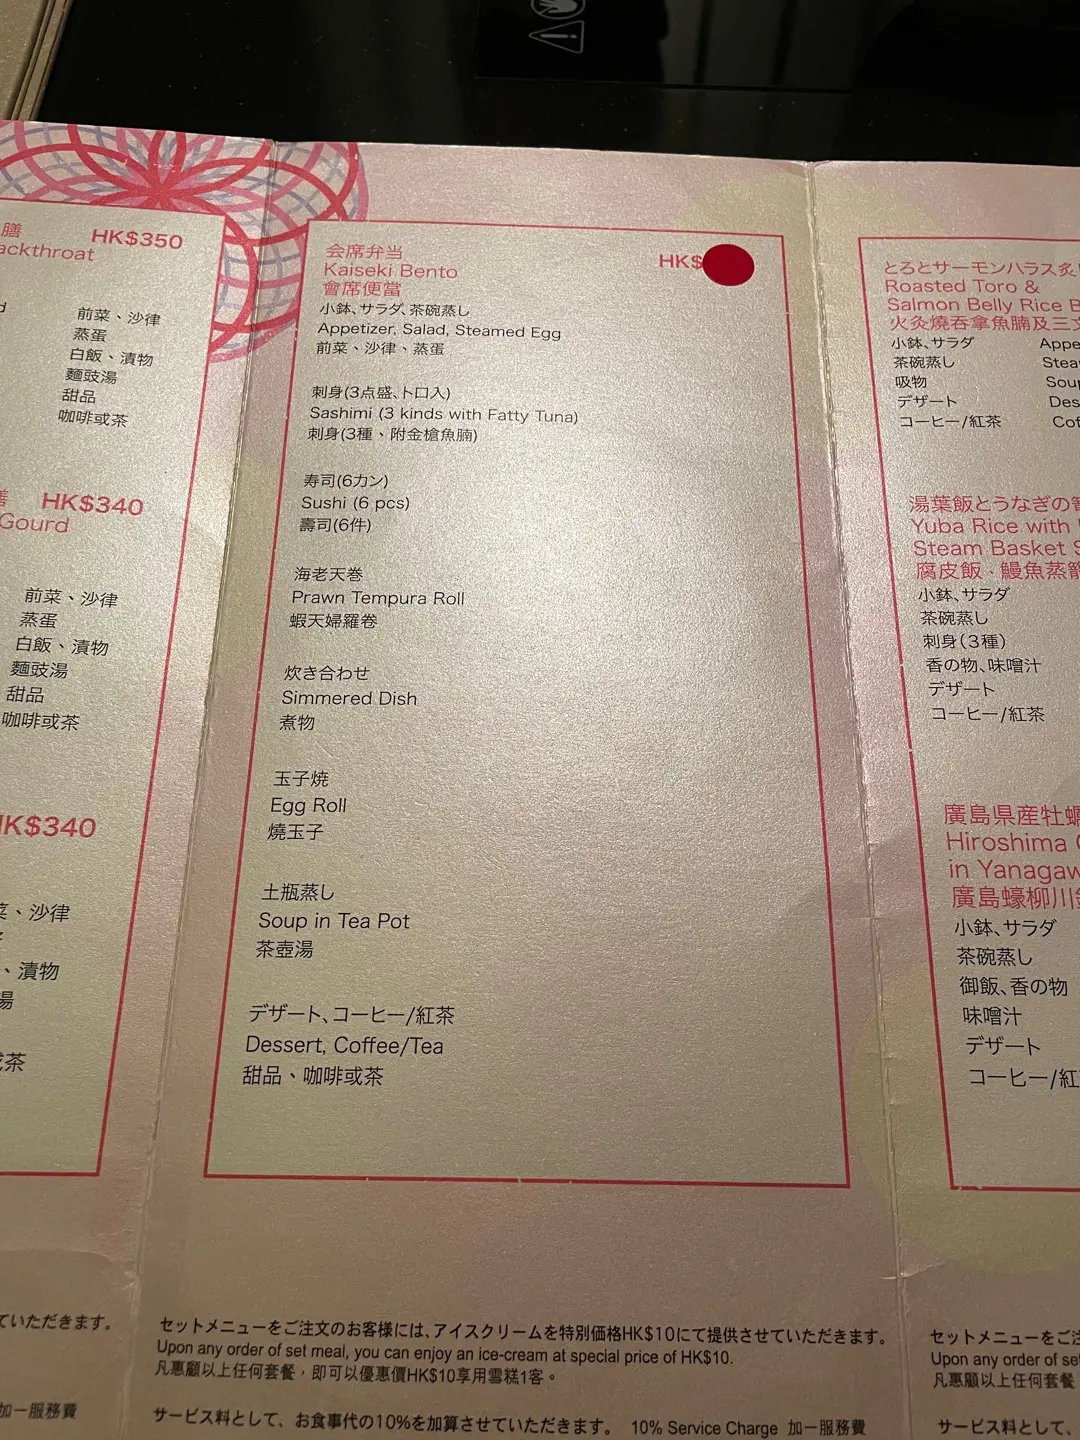 膳
HK$350
ackthroat
前菜、沙律
蒸蛋
白飯、漬物
麵豉湯
甜品
咖啡或茶
膳
HK$340
Gourd
前菜、沙律
蒸蛋
白飯、漬物
麵豉湯
甜品
咖啡或茶
HK$340
菜、沙律
、漬物
湯
茶
ていただきます。
加一服務費
会席弁当
HK$
Kaiseki Bento
會席便當
小鉢、サラダ、茶碗蒸し
Appetizer, Salad, Steamed Egg
前菜、沙律、蒸蛋
刺身(3点盛、トロ入)
Sashimi (3 kinds with Fatty Tuna)
刺身(3種、附金槍魚腩)
寿司(6カン)
Sushi (6 pcs)
壽司(6件)
海老天巻
Prawn Tempura Roll
蝦天婦羅卷
炊き合わせ
Simmered Dish
煮物
玉子焼
Egg Roll
燒玉子
土瓶蒸し
Soup in Tea Pot
茶壺湯
デザート、コーヒー/紅茶
Dessert, Coffee/Tea
甜品、咖啡或茶
セットメニューをご注文のお客様には、アイスクリームを特別価格HK$10にて提供させていただきます。
Upon any order of set meal, you can enjoy an ice-cream at special price of HK$10.
凡惠顧以上任何套餐，即可以優惠價HK$10享用雪糕1客。
サービス料として、お食事代の10%を加算させていただきます。 10% Service Charge 加一服務費
とろとサーモンハラス炙
Roasted Toro &
Salmon Belly Rice B
火灸燒吞拿魚腩及三文
小鉢、サラダ Appe
茶碗蒸し Stea
吸物 Soup
デザート Des
コーヒー/紅茶 Cof
湯葉飯とうなぎの
Yuba Rice with
Steam Basket S
腐皮飯、鰻魚蒸籠
小鉢、サラダ
茶碗蒸し
刺身(3種)
香の物、味噌汁
デザート
コーヒー/紅茶
廣島県産牡蠣
Hiroshima
in Yanagaw
廣島蠔柳川
小鉢、サラダ
茶碗蒸し
御飯、香の物
味噌汁
デザート
コーヒー/紅
セットメニューをご注
Upon any order of set
凡惠顧以上任何套餐
サービス料として、